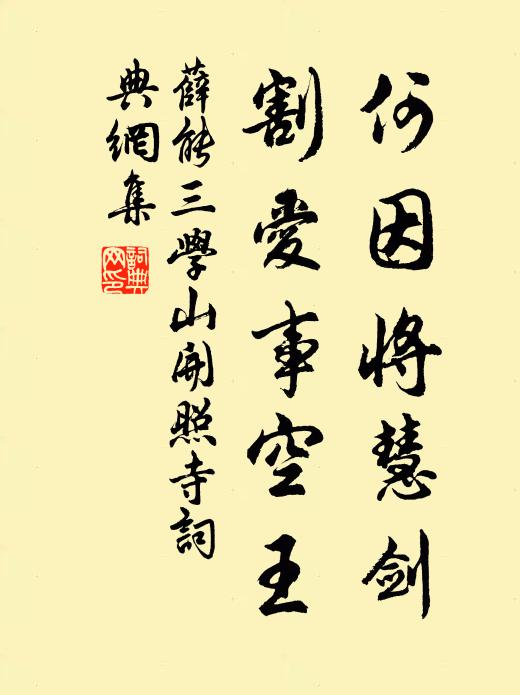 何因將慧劍
割愛事空王
薛能三學山開照寺詞
典網集
詞典
网印